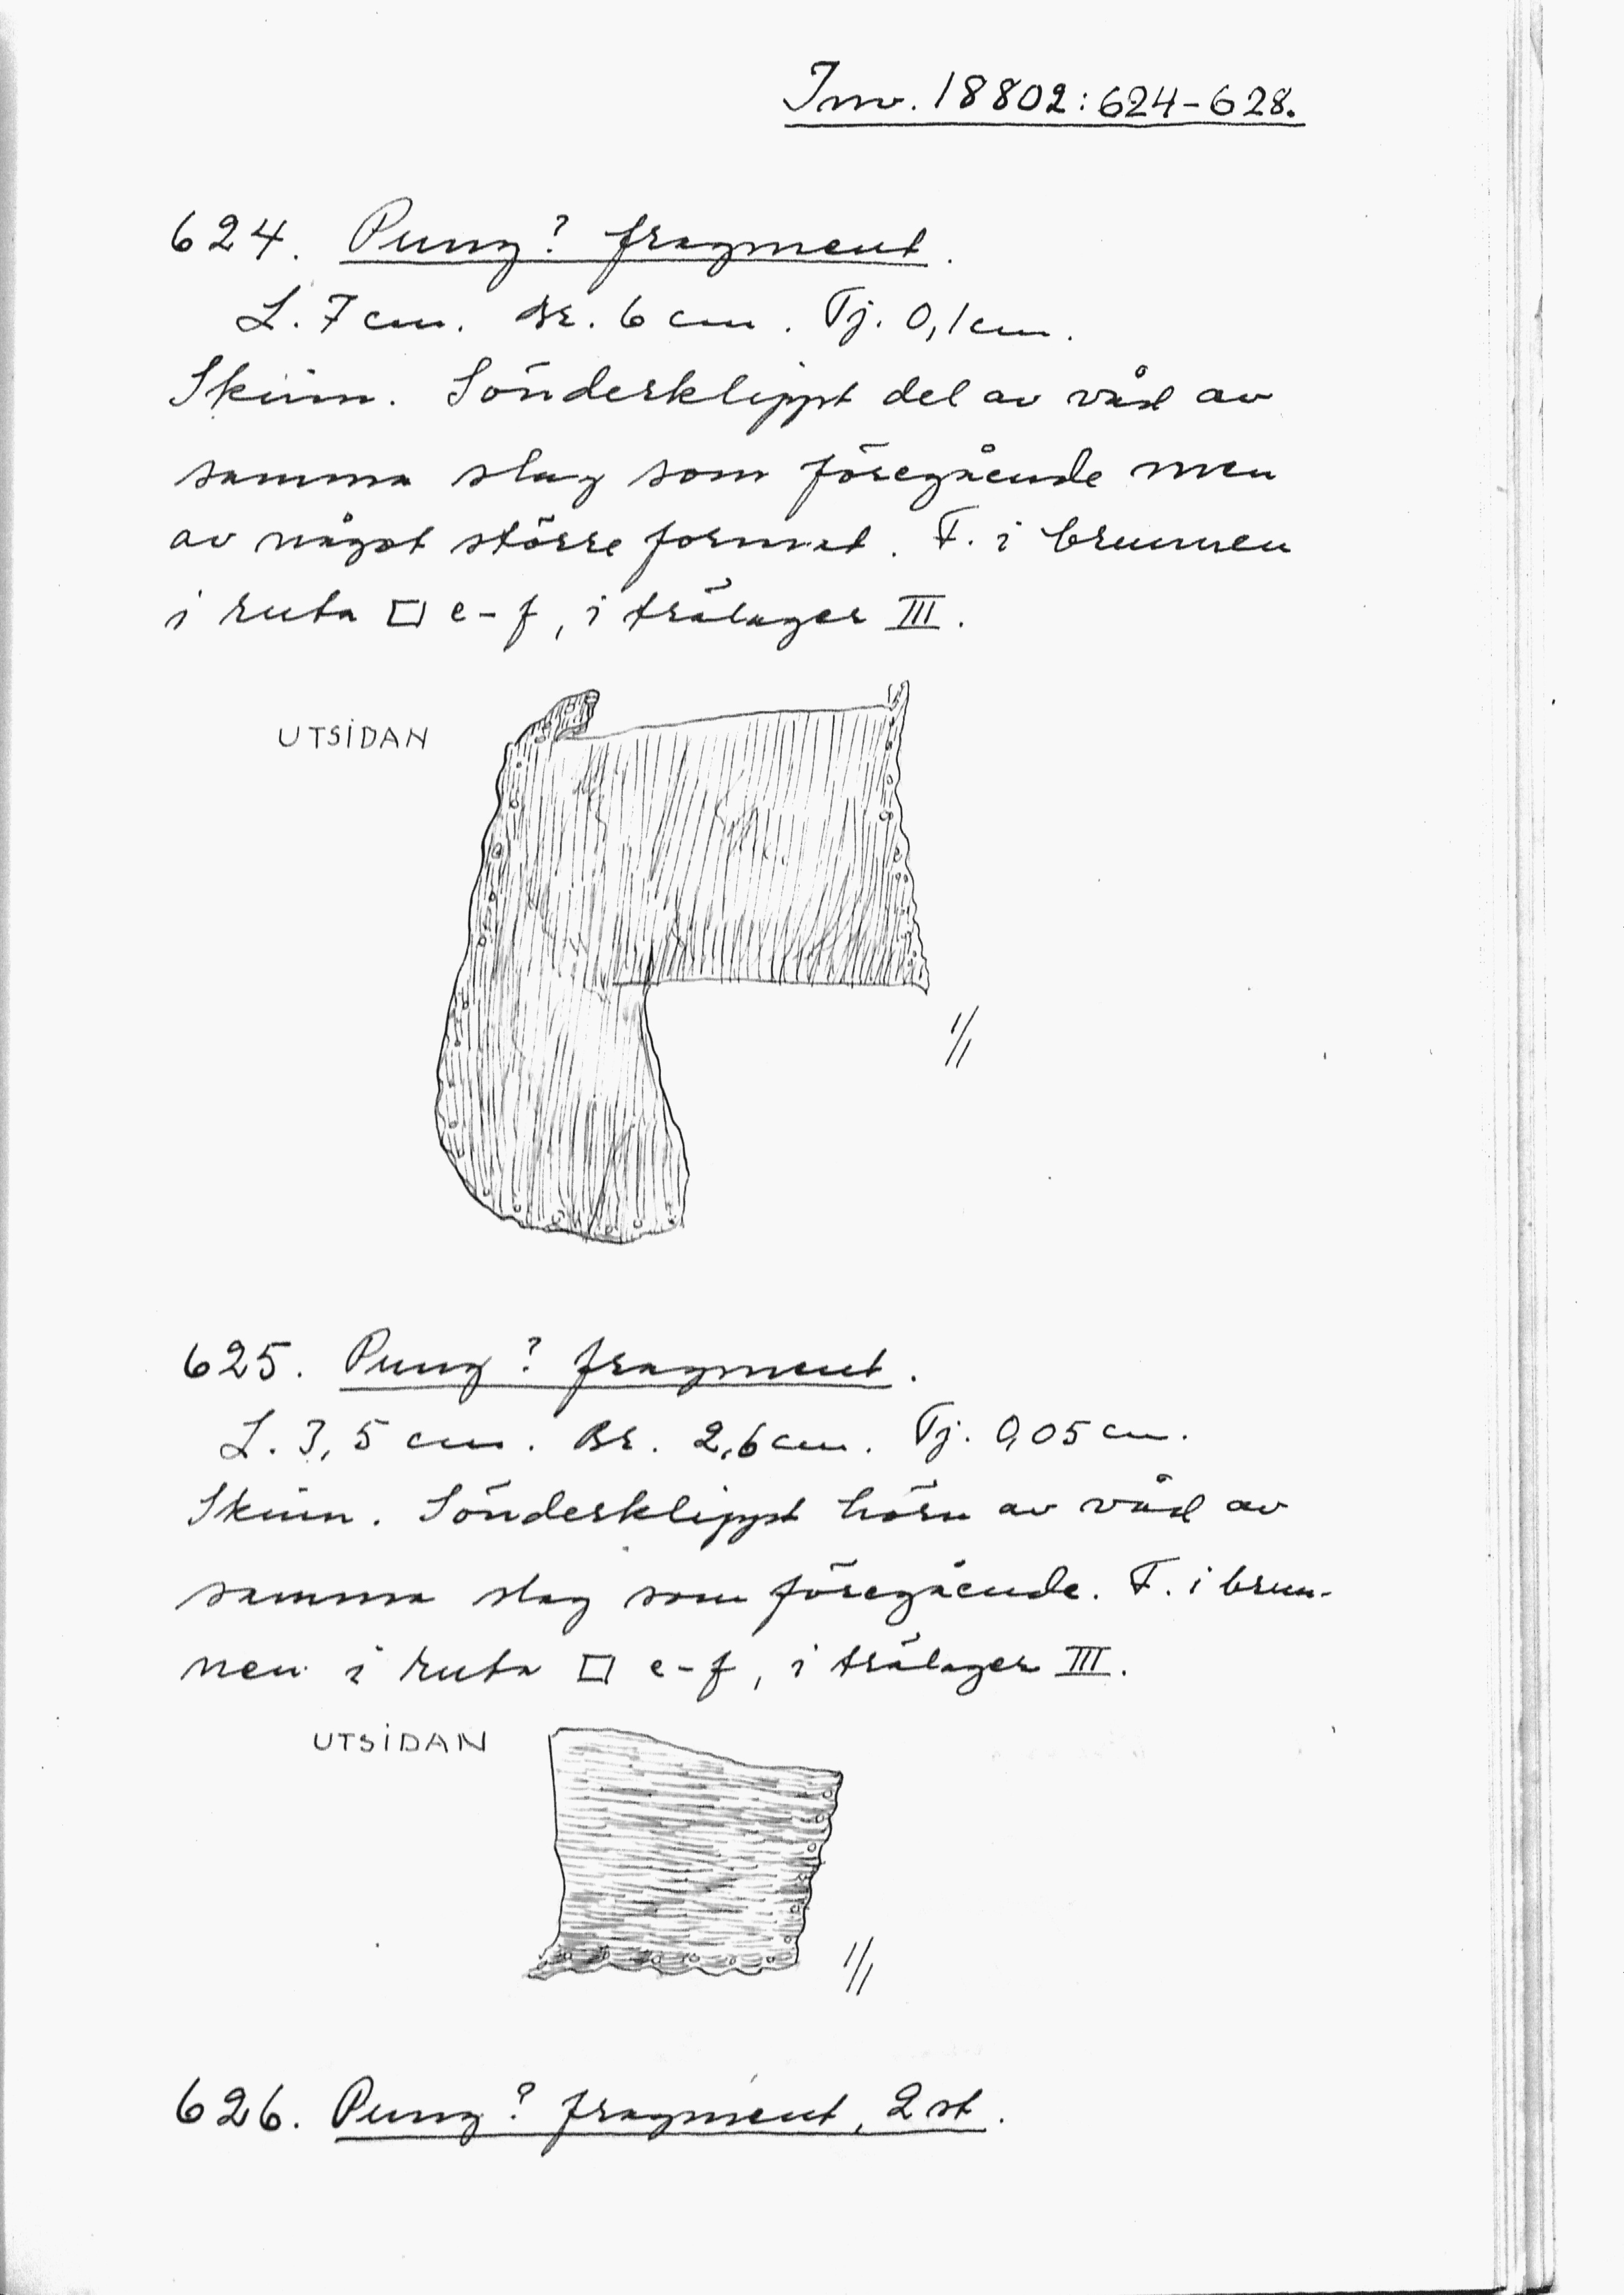 Inv. 18802:624-628.
624. Pung? fragment.
L. 7 cm. Br. 6 cm. Tj. 0,1 cm.
Skinn. Sönderklippt del av våd av
samma slag som föregående men
av något större format. F. i brunnen
i ruta □ e-f, i trälager III.
UTSIDAN
1/1
625. Pung? fragment.
L. 3,5 cm. Br. 2,6 cm. Tj. 0,05 cm.
Skinn. Sönderklippt hörn av våd av
samma slag som föregående. F. i brun-
nen i ruta □ e-f, i trälager III.
UTSIDAN
1/1
626. Pung? fragment, 2 st.